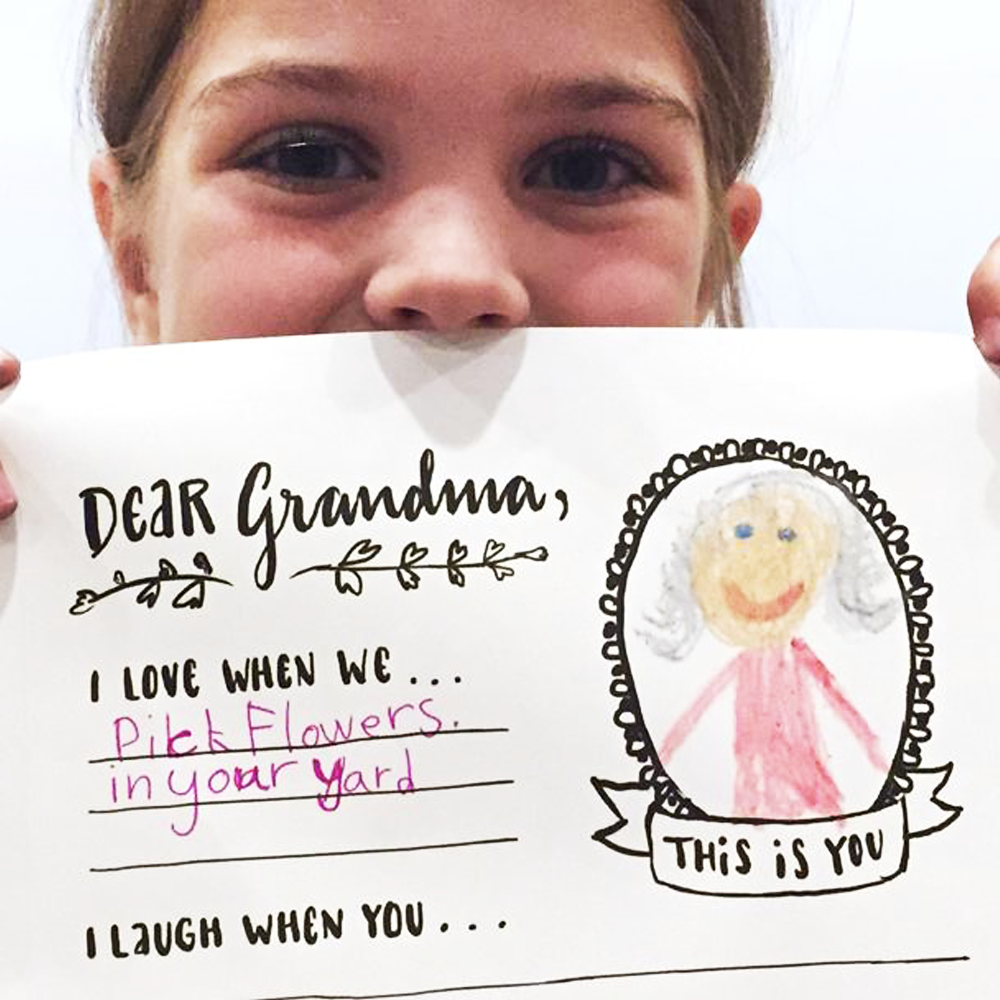 DEAR Grandma,
I LOVE WHEN WE...
Pick Flowers.
in your yard
I LAUGH WHEN YOU...
THIS IS YOU